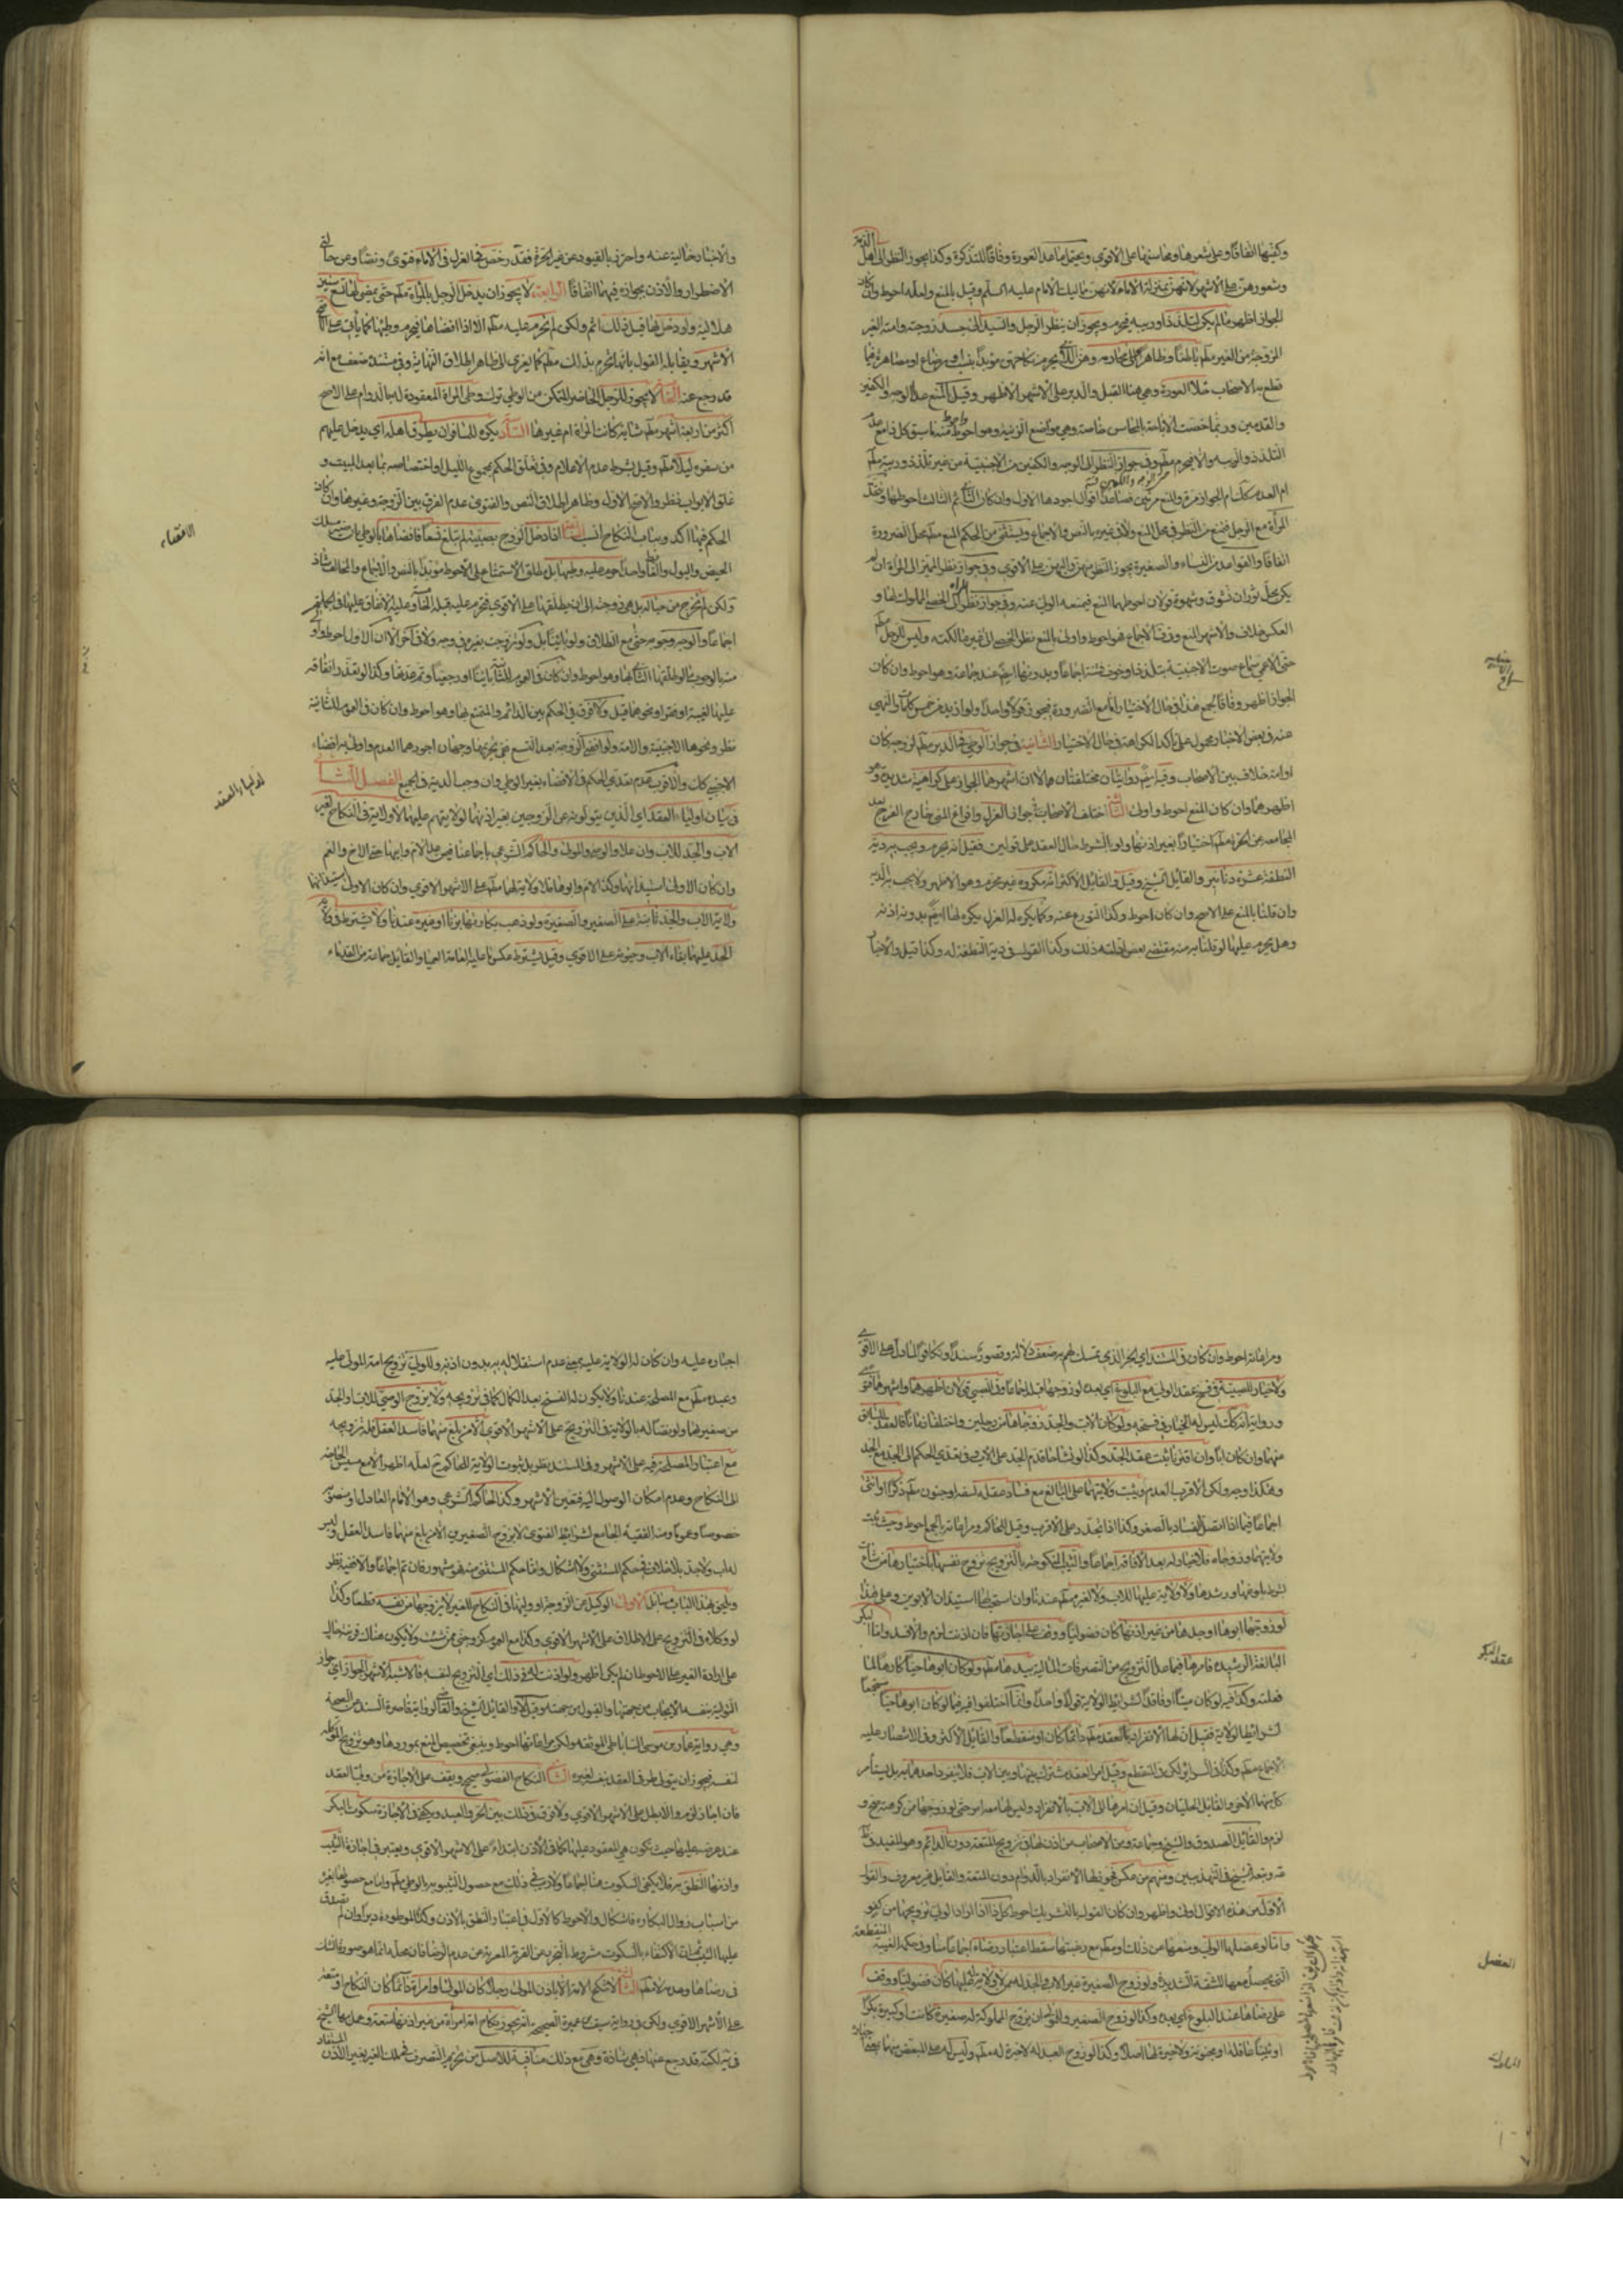 وكفيها اتفاقا وعلى شعرها ومحاسنها على الأقوى ويحتمل ما عدا العورة وفاقا للتذكرة وكذا يجوز النظر إلى أهل الذمة
وشعورهن على الأشهر لأنهن بمنزلة الإماء لأنهن مماليك الإمام عليه السلم وقيل بالمنع ولعله أحوط وإن كان
الجواز أظهر ما لم يكن لتلذذ أو ريبة فيحرم ويجوز أن ينظر الرجل والسيد إلى جسد زوجته وأمته الغير
المزوجة من الغير مطلقا باطنا وظاهرا وإلى محارمه وهن اللاتي يحرم نكاحهن مؤبدا بنسب أو رضاع أو مصاهرة فيما
قطع به الأصحاب خلا العورة وهي هنا القبل والدبر على الأشهر الأظهر وقيل بالمنع عدا الوجه والكفين
والقدمين وربما خصت الإباحة بالمحاسن خاصة وهي مواضع الزينة وهو أحوط
التلذذ والريبة وإلا فيحرم مطلقا وفي جواز النظر إلى الوجه والكفين من الأجنبية من غير تلذذ وريبة مطلقا
أم العدم كذلك أم الجواز مرة والمنع مرتين فصاعدا أقوال أجودها الأول وإن كان الثاني ثم الثالث أحوطها
المرأة مع الرجل فتمنع من النظر في محل المنع ولا في غيره بالنص والإجماع ويستثنى من الحكم بالمنع مطلقا محل الضرورة
اتفاقا والقواعد من النساء والصغيرة يجوز النظر منهن وإليهن على الأقوى وفي جواز نظر المميز إلى المرأة إن لم
يكن محل ثوران تشوق وشهوة قولان أحوطهما المنع فيمنعه الولي عنه وفي جواز نظر المرأة إلى الخصي المملوك لها أو
العكس خلاف والأشهر المنع وفي ف الإجماع فهو أحوط وأولى بالمنع نظر الخصي إلى غير مالكته وليس للرجل مطلقا
حتى الأعمى سماع صوت الأجنبية بتلذذ أو خوف فتنة إجماعا وبدونها أيضا عند جماعة وهو أحوط وإن كان
الجواز أظهر وفاقا لجمع هذا في حال الاختيار أما مع الضرورة فيجوز قولا واحدا ولو أزيد من خمس كلمات والنهي
عنه في بعض الأخبار محمول على تأكد الكراهة في حال الاختيار الثانية في جواز الوطي في الدبر مطلقا لزوجة كان
أو أمة خلاف بين الأصحاب وفيه أيضا روايتان مختلفتان إلا أن أشهرهما الجواز على كراهية شديدة وهو
أظهرهما وإن كان المنع أحوط وأولى الثالثة اختلف الأصحاب في جواز العزل وإفراغ المني خارج الفرج بعد
المجامعة عن الحرة مطلقا اختيارا بغير إذنها ولو بالشرط حال العقد على قولين فقيل إنه يحرم ويجب به دية
النطفة عشرة دنانير والقائل الشيخ وقيل والقائل الأكثر إنه مكروه غير محرم وهو الأظهر ولا يجب به الدية
وإن قلنا بالمنع على الأصح وإن كان أحوط وكذا التورع عنه وكما يكره له العزل يكره لها أيضا بدون إذنه
وهل يحرم عليها لو قلنا به منه مقتضى بعض أدلته ذلك وكذا القول في دية النطفة له وكذا قيل والأخبار
والأخبار خالية عنه واحترز بالقيود عن غير الحرة فقد رخص في العزل في الإماء فتوى ونصا وعن حالتي
الاضطرار والإذن بجوازه فيهما اتفاقا الرابعة لا يجوز أن يدخل الرجل بالمرأة مطلقا حتى يمضي لها تسع سنين
هلالية ولو دخل بها قبل ذلك أثم ولكن لم تحرم عليه مطلقا إلا إذا أفضاها فيحرم وطيها كما يأتي على الأصح
الأشهر ويقابله القول بأنها تحرم بذلك مطلقا كما يعزى إلى ظاهر إطلاق النهاية وفي مستنده ضعف مع أنه
قد رجع عنه الخامسة لا يجوز للرجل الحاضر المتمكن من الوطي ترك وطي المرأة المعقودة له بالدوام على الأصح
أكثر من أربعة أشهر مطلقا شابة كانت المرأة أم غيرها السادسة يكره للمسافر أن يطرق أهله أي يدخل عليهم
من سفره ليلا مطلقا وقيل بشرط عدم الإعلام وفي تعلق الحكم بمجموع الليل أو اختصاصه بما بعد المبيت و
غلق الأبواب نظر والأصح الأول وظاهر إطلاق النص والفتوى عدم الفرق بين الزوجة وغيرها وإن كان
الحكم فيها آكد وبباب النكاح أنسب السابعة إذا دخل الزوج بصبية لم تبلغ تسعا فأفضاها بالوطي بأن صير مسلك
الحيض والبول والغائط واحدا حرم عليه وطيها بل مطلق الاستمتاع على الأحوط مؤبدا بالنص والإجماع والمخالف شاذ
ولكن لم تخرج من حباله بل هي زوجته إلى أن يطلقها على الأقوى فتحرم عليه قبله الخامسة وعليه الإنفاق عليها
إجماعا والوجه وجوبه حتى مع الطلاق ولو بائنا بل ولو تزوجت بغيره في وجه ولا في آخر إلا أن الأول أحوط
عليها لغيبة أو فقر أو نحوها قيل ولا فرق في الحكم بين الدائم والمتمتع بها وهو أحوط وإن كان في العموم للثانية
نظر ونحوها الأجنبية والأمة ولو أفضى الزوجة بعد التسع ففي تحريمها وجهان أجودهما العدم وأولى به إفضاء
الأجنبي كذلك والأقرب عدم تعدي الحكم في الإفضاء بغير الوطي وإن وجب الدية في الجميع الفصل الثالث
في بيان أولياء العقد أي الذين يتولونه عن الزوجين بغير إذنهما لولايتهم عليهما لا ولاية في النكاح لغير
الأب والجد للأب وإن علا والوصي والمولى والحاكم الشرعي بإجماعنا فليس على الأم وأبيها حتى الأخ والعم
وإن كان الأولى استيذانها وكذا الأم وأبوها فلا ولاية لهما مطلقا على الأشهر الأقوى وإن كان الأولى استيذانهما
ولاية الأب والجد ثابتة على الصغير والصغيرة ولو ذهب بكارتها بزنا أو غيره عندنا ولا يشترط في ولاية
الجد عليهما بقاء الأب وحيوته على الأقوى وقيل يشترط عكس ما عليه العامة العمياء والقائل جماعة من القدماء
الافضاء
اولياء العقد
ومراعاته أحوط وإن كان في المستند أي الخبر الذي تمسك لهم به ضعف دلالة وقصور سندا وتكافؤا لما دل على الأقوى
ولا خيار للصبية في فسخ عقد الولي مع البلوغ أي بعده لو زوجها قبله إجماعا وفي الصبي قولان أظهرهما وأشهرهما فتوى
ورواية أنه كذلك ليس له الخيار في فسخه ولو كان الأب والجد زوجاها من رجلين واختلفا زمانا فالعقد للسابق
منهما وإن كان أبا وإن اقترنا ثبت عقد الجد وكذا لو تشاحا قدم الجد على الأب وفي تعدي الحكم إلى الجد مع الجد
وهكذا وجه ولكن الأقرب العدم ويثبت ولايتهما على البالغ مع فساد عقله لسفه أو جنون مطلقا ذكرا أو أنثى
إجماعا فيما إذا اتصل الفساد بالصغر وكذا إذا تجدد على الأقرب وقيل للحاكم ومراعاته بالجمع أحوط وحيث ثبت
ولايتهما وزوجاه فلا خيار له بعد الإفاقة إجماعا والثيب المنكوحة بالتزويج تزوج نفسها باختيارها من شاءت
بشرط بلوغها ورشدها ولا ولاية عليها للأب ولا لغيره مطلقا عندنا وإن استحب لها استيذان الأبوين وعلى هذا
لو زوجها أبوها أو جدها من غير إذنها كان فضوليا ووقف على إجازتها فإن أذنت لزم وإلا فسد وأما البكر
البالغة الرشيدة فأمرها فيما عدا التزويج من التصرفات المالية بيدها مطلقا ولو كان أبوها حيا كارها لما
فعلته وكذا فيه لو كان ميتا أو فاقدا لشرائط الولاية قولا واحدا وإنما اختلفوا فيه فيما لو كان أبوها حيا مستجمعا
لشرائط الولاية فقيل إن لها الانفراد بالعقد مطلقا دائما كان أو منقطعا والقائل الأكثر وفي الانتصار عليه
الإجماع مطلقا وكذا في السرائر لكن في المنقطع وقيل أمر العقد مشترك بينها وبين الأب فلا ينفرد أحدهما به بل يستأمر
كل منهما الآخر والقائل الحلبيان وقيل إن أمرها إلى الأب بالانفراد وليس لها معه أمر حتى لو زوجها من كرهته صح و
لزم والقائل الصدوق والشيخ وجماعة ومن الأصحاب من أذن لها في تزويج المتعة دون الدائم وهو المفيد
وتبعه الشيخ في التهذيبين ومنهم من عكس فجوز لها الانفراد بالدوام دون المتعة والقائل غير معروف والقول
الأول من هذه الأقوال أولى وأظهر وإن كان القول بالتشريك أحوط كل ذا إذا أراد الولي تزويجها من كفو
وأما لو عضلها الولي ومنعها من ذلك ولو مطلقا مع رغبتها سقط اعتبار رضاه إجماعا منا وفي حكمه الغيبة المنقطعة
التي يحصل معها المشقة الشديدة ولو زوج الصغيرة غير الأب والجد له ممن لا ولاية له عليها كان فضوليا ووقف
على رضاها عند البلوغ أي بعده وكذا لو زوج الصغير وللمولى أن يزوج المملوكة له صغيرة كانت أو كبيرة بكرا
أو ثيبا عاقلة أو مجنونة ولا خيرة لها أصلا وكذا لو زوج العبد له لا خيرة له مطلقا وليس له على المبعض منهما
عقد البكر
العضل
إجباره عليه وإن كان له الولاية عليه بمعنى عدم استقلاله به بدون إذنه وللولي تزويج أمة المولى عليه
وعبده مطلقا مع المصلحة عندنا ولا يكون له الفسخ بعد الكمال كما في تزويجه ولا يزوج الوصي للأب أو الجد
من صغيريهما ولو نصا له بالولاية في التزويج على الأشهر الأقوى إلا من بلغ منهما فاسد العقل فله تزويجه
مع اعتبار المصلحة فيه على الأشهر وفي المستند نظر بل ثبوت الولاية للحاكم ثم لعله أظهر إلا مع مسيس الحاجة
إلى النكاح وعدم إمكان الوصول إليه فتعين الأشهر وكذا الحاكم الشرعي وهو الإمام العادل أو منصوبه
خصوصا وعموما ومنه الفقيه الجامع لشرائط الفتوى لا يزوج الصغيرين إلا من بلغ منهما فاسد العقل وليس
له أب ولا جد بلا خلاف في حكم المستثنى ولا إشكال وأما حكم المستثنى منه فمشهور فإن تم إجماعا وإلا ففيه نظر
ويلحق بهذا الباب مسائل الأولى الوكيل عن الزوجة أو وليها في النكاح للغير لا يزوجها من نفسه قطعا وكذا
لو وكلاه في التزويج على الإطلاق على الأشهر الأقوى وكذا مع العموم كزوجني ممن شئت ولا يكون هناك قرينة حالية
على إرادة الغير على الأحوط إن لم يكن أظهر ولو أذنت له في ذلك أي التزويج لنفسه فالأشبه الأشهر الجواز أي جواز
التولية بنفسه الإيجاب من جهتها والقبول من جهته وقيل لا والقائل الشيخ والقاضي لرواية قاصرة السند عن الصحة
وهي رواية عمار بن موسى الساباطي الموثقة ولكن مراعاتها أحوط وينبغي تخصيص المنع بموردها وهو تزويج الموكلة
لنفسه فيجوز أن يتولى طرفي العقد بنفسه لغيره الثانية النكاح الفضولي صحيح ويقف على الإجازة ممن ولي العقد
فإن أجاز لزم وإلا بطل على الأشهر الأقوى ولا فرق في ذلك بين الحر والعبد ويكفي في الإجازة سكوت البكر
عند عرضه عليها حيث تكون هي المعقود عليها كما في الإذن ابتداء على الأشهر الأقوى ويعتبر في إجازة الثيب
وإذنها النطق به فلا يكفي السكوت هنا إجماعا ولا ريب في ذلك مع حصول الثيبوبة بالوطي مطلقا وأما مع حصولها بغيره
من أسباب زوال البكارة فإشكال والأحوط كالأول في اعتبار النطق بالإذن وكذا الموطوءة دبرا وإن لم تصدق
عليها الثيب ثم إن الاكتفاء بالسكوت مشروط بالتجرد عن القرينة المعربة عن عدم الرضا فإن محله إنما هو صورة الشك
في رضاها وعدمه لا مطلقا الثالثة لا تنكح الأمة إلا بإذن المولى رجلا كان المولى أو امرأة دائما كان النكاح أو متعة
على الأشهر الأقوى ولكن في رواية سيف بن عميرة الصحيحة أنه يجوز نكاح أمة امرأة من غير إذنها متعة وعمل بها الشيخ
في يه لكنه قد رجع عنها فهي شاذة وهي مع ذلك منافية للأصل من تحريم التصرف في ملك الغير بغير الإذن المستفاد